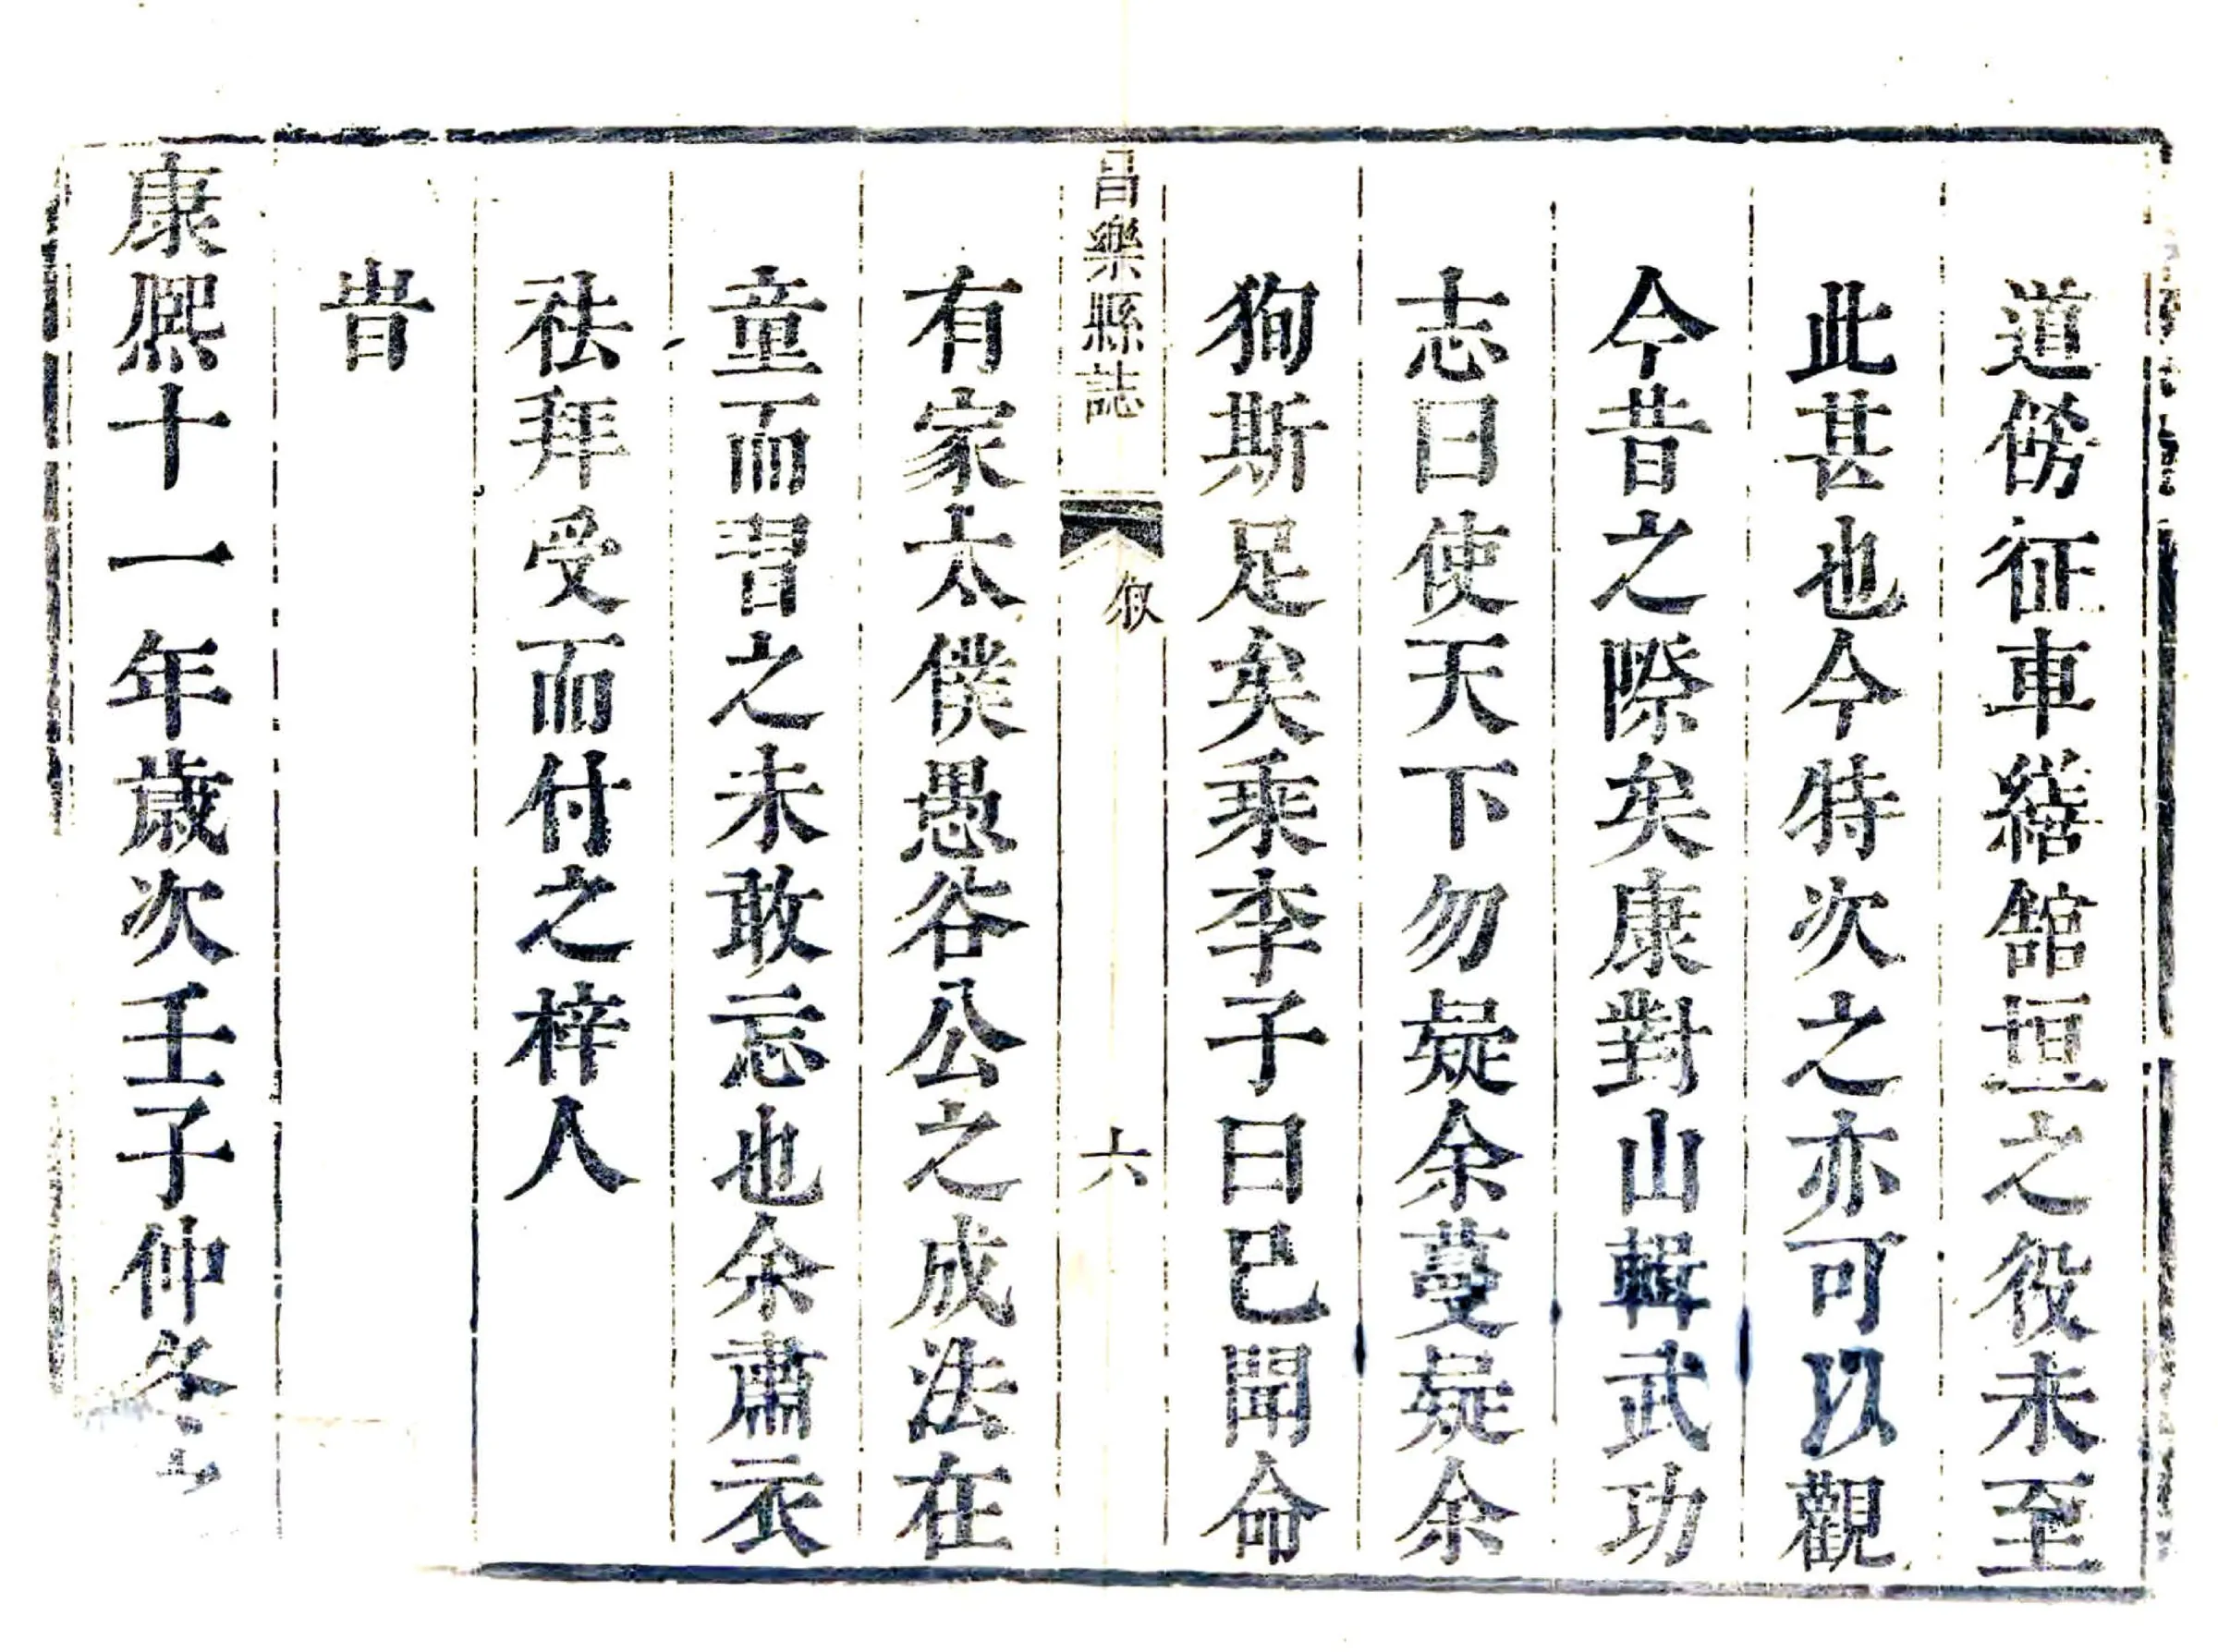 道傍征車繕舘垣之役未至
此甚也今特次之亦可以觀
今昔之際矣康對山輯武功
志曰使天下勿疑余蔓疑余
狥斯足矣乘李子曰已聞命
昌樂縣誌
叙
六
有家太僕愚谷公之成法在
童而習之未敢忘也余肅衣
祛拜受而付之梓人
旹
康熙十一年歲次壬子仲冬